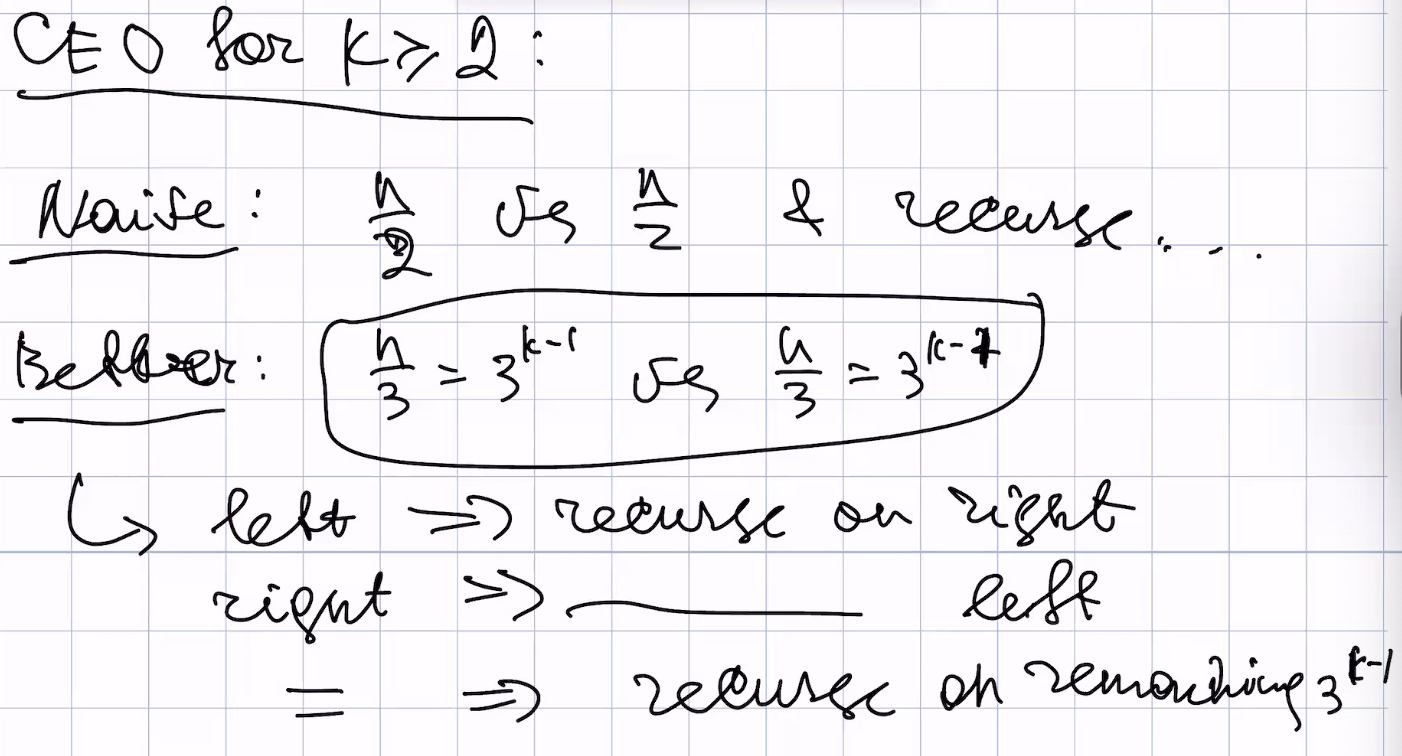 CEO for k ≥ 2 :
Naive : n/2 vs n/2 & recurse . . .
Better : n/3 = 3^{k-1} vs n/3 = 3^{k-1}
↳ left ⇒ recurse on right
right ⇒ ———— left
= ⇒ recurse on remaining 3^{k-1}